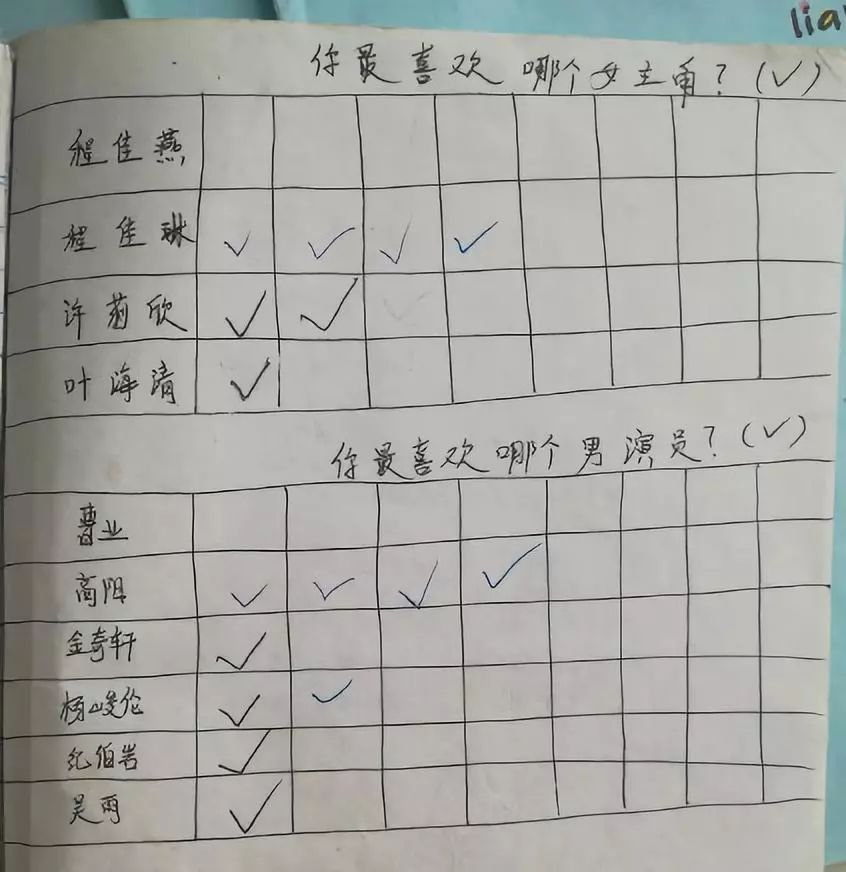 lia
你最喜欢哪个女主角?(✓)
程佳燕
程佳琳 ✓ ✓ ✓ ✓
许莉欣 ✓ ✓ ✓
叶海清 ✓
你最喜欢哪个男演员?(✓)
曹业
高阳 ✓ ✓ ✓ ✓
金奇轩 ✓
杨峻伦 ✓ ✓
纪伯岩 ✓
吴雨 ✓